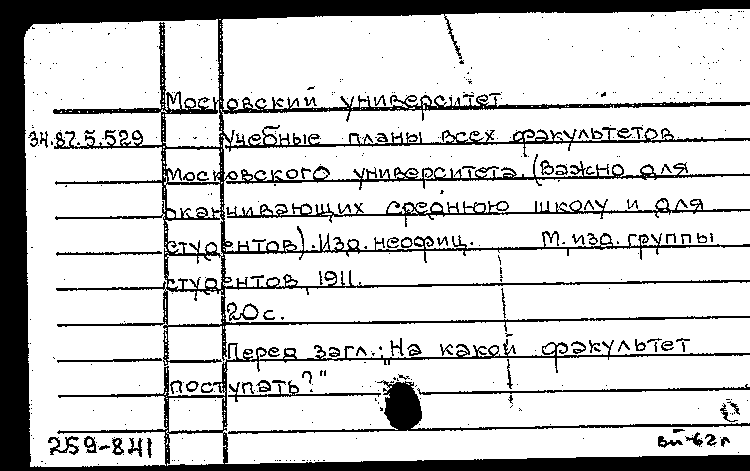 Московский университет
34.87.5.529 Учебные планы всех факультетов
Московского университета. (Важно для
оканчивающих среднюю школу и для
студентов). Изд. неофиц. М. изд. группы
студентов, 1911.
20 с.
Перед загл.: "На какой факультет
поступать?"
259-841 вй-62г